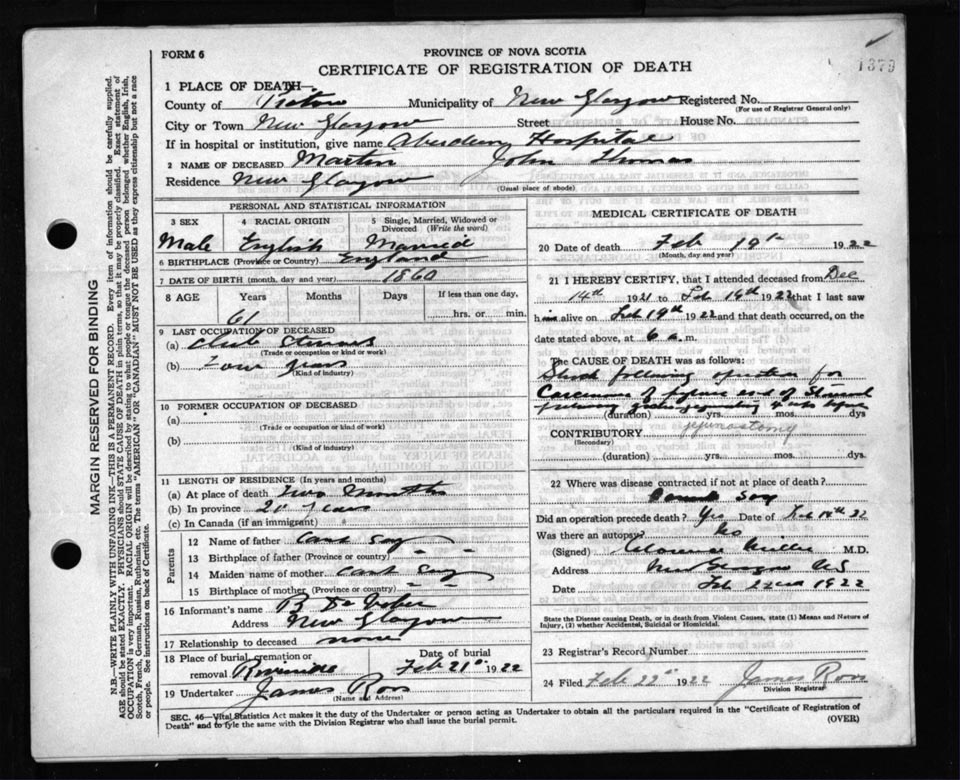 FORM 6
PROVINCE OF NOVA SCOTIA
CERTIFICATE OF REGISTRATION OF DEATH
1379
1 PLACE OF DEATH—
County of Pictou Municipality of New Glasgow Registered No.
(For use of Registrar General only)
City or Town New Glasgow Street House No.
If in hospital or institution, give name Aberdeen Hospital
2 NAME OF DECEASED Martin John Thomas
Residence New Glasgow
(Usual place of abode)
PERSONAL AND STATISTICAL INFORMATION
3 SEX 4 RACIAL ORIGIN 5 Single, Married, Widowed or Divorced (Write the word)
Male English Married
6 BIRTHPLACE (Province or Country) England
7 DATE OF BIRTH (month, day and year) 1860
8 AGE Years Months Days If less than one day,
61 hrs. or min.
9 LAST OCCUPATION OF DECEASED
(a) Club Steward
(Trade or occupation or kind or work)
(b) Four years
(Kind of industry)
10 FORMER OCCUPATION OF DECEASED
(a)
(Trade or occupation or kind of work)
(b)
(Kind of industry)
11 LENGTH OF RESIDENCE (In years and months)
(a) At place of death Two Months
(b) In province 20 years
(c) In Canada (if an immigrant)
Parents
12 Name of father Cant Say
13 Birthplace of father (Province or country) " "
14 Maiden name of mother Cant Say
15 Birthplace of mother (Province or country) " "
16 Informant's name
Address New Glasgow
17 Relationship to deceased none
18 Place of burial, cremation or removal Riverside Date of burial Feb 21st 1922
19 Undertaker James Ross
(Name and Address)
MEDICAL CERTIFICATE OF DEATH
20 Date of death Feb 19th 1922
(Month, day and year)
21 I HEREBY CERTIFY, that I attended deceased from Dec
14th 1921 to Feb 19th 1922 that I last saw
him alive on Feb 19th 1922 and that death occurred, on the
date stated above, at 6 a.m.
The CAUSE OF DEATH was as follows:
Shock following operation for
Carcinoma of pyloric end of Stomach
(duration) yrs. mos. dys
CONTRIBUTORY jejunostomy
(Secondary)
(duration) yrs. mos. dys.
22 Where was disease contracted if not at place of death?
Cannot Say
Did an operation precede death? Yes Date of Feb 18th 22
Was there an autopsy? No
(Signed) Clarence Miller M.D.
Address New Glasgow N.S
Date Feb 22nd 1922
State the Disease causing Death, or in death from Violent Causes, state (1) Means and Nature of Injury, (2) whether Accidental, Suicidal or Homicidal.
23 Registrar's Record Number
24 Filed Feb 22nd 1922 James Ross
Division Registrar
SEC. 46—Vital Statistics Act makes it the duty of the Undertaker or person acting as Undertaker to obtain all the particulars required in the "Certificate of Registration of
Death" and to fyle the same with the Division Registrar who shall issue the burial permit.
(OVER)
MARGIN RESERVED FOR BINDING
N.B—WRITE PLAINLY WITH UNFADING INK—THIS IS A PERMANENT RECORD. Every item of information should be carefully supplied.
AGE should be stated EXACTLY. PHYSICIANS should STATE CAUSE OF DEATH in plain terms, so that it may be properly classified. Exact statement of
OCCUPATION is very important. RACIAL ORIGIN will be described by stating to what people or tongue the deceased person belonged whether English, Irish,
Scotch, French, German, Russian, Ruthenian, etc. The terms "AMERICAN" OR "CANADIAN" MUST NOT BE USED as they express citizenship but not a race
or people. See instructions on back of Certificate.